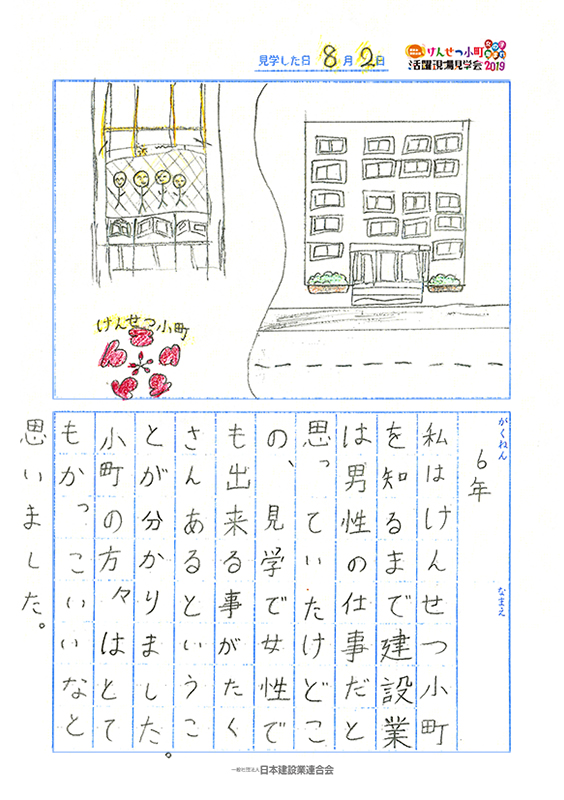 見学した日 8月2日
けんせつ小町
活躍現場見学会
2019
けんせつ小町
がくねん
6年
なまえ
私はけんせつ小町
を知るまで建設業
は男性の仕事だと
思っていたけどこ
の、見学で女性で
も出来る事がたく
さんあるというこ
とが分かりました。
小町の方々はとて
もかっこいいなと
思いました。
一般社団法人 日本建設業連合会